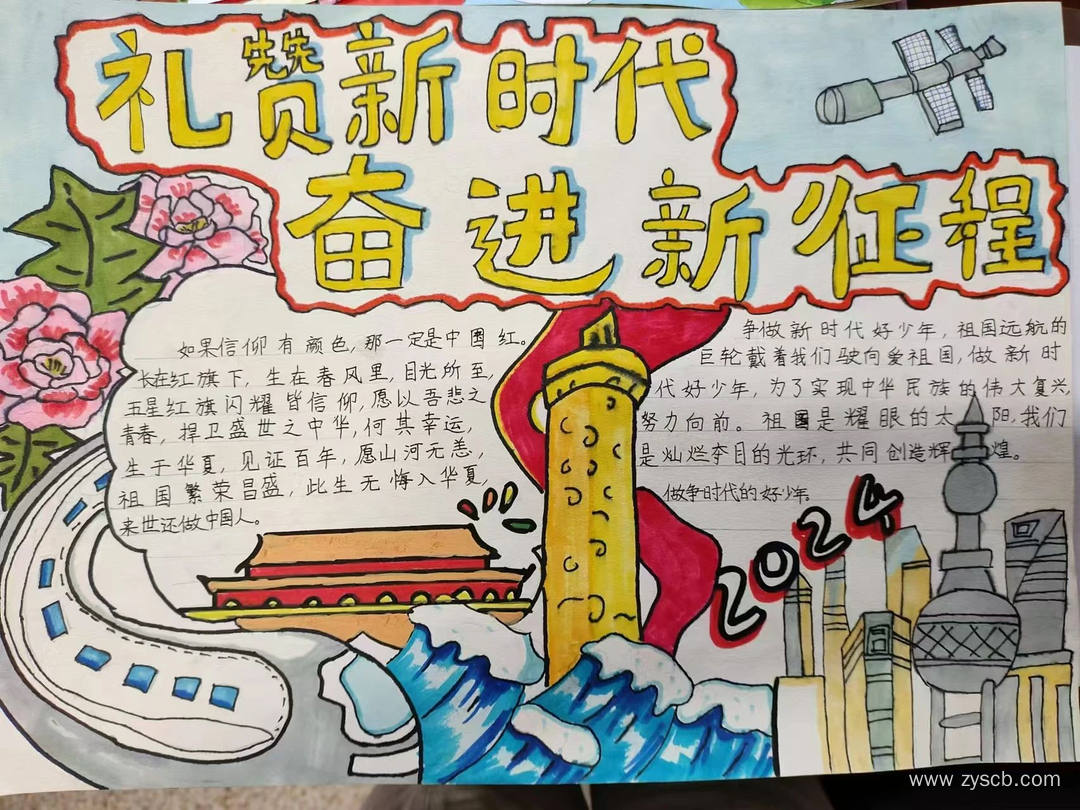 礼赞新时代
奋进新征程
如果信仰有颜色，那一定是中国红。
长在红旗下，生在春风里，目光所至，
五星红旗闪耀皆信仰，愿以吾悲之
青春，捍卫盛世之中华，何其幸运，
生于华夏，见证百年，愿山河无恙，
祖国繁荣昌盛，此生无悔入华夏，
来世还做中国人。
争做新时代好少年，祖国远航的
巨轮戴着我们驶向爱祖国，做新时
代好少年，为了实现中华民族的伟大复兴
努力向前。祖国是耀眼的太阳，我们
是灿烂夺目的光环，共同创造辉煌。
做争时代的好少年
2024
www.zyscb.com